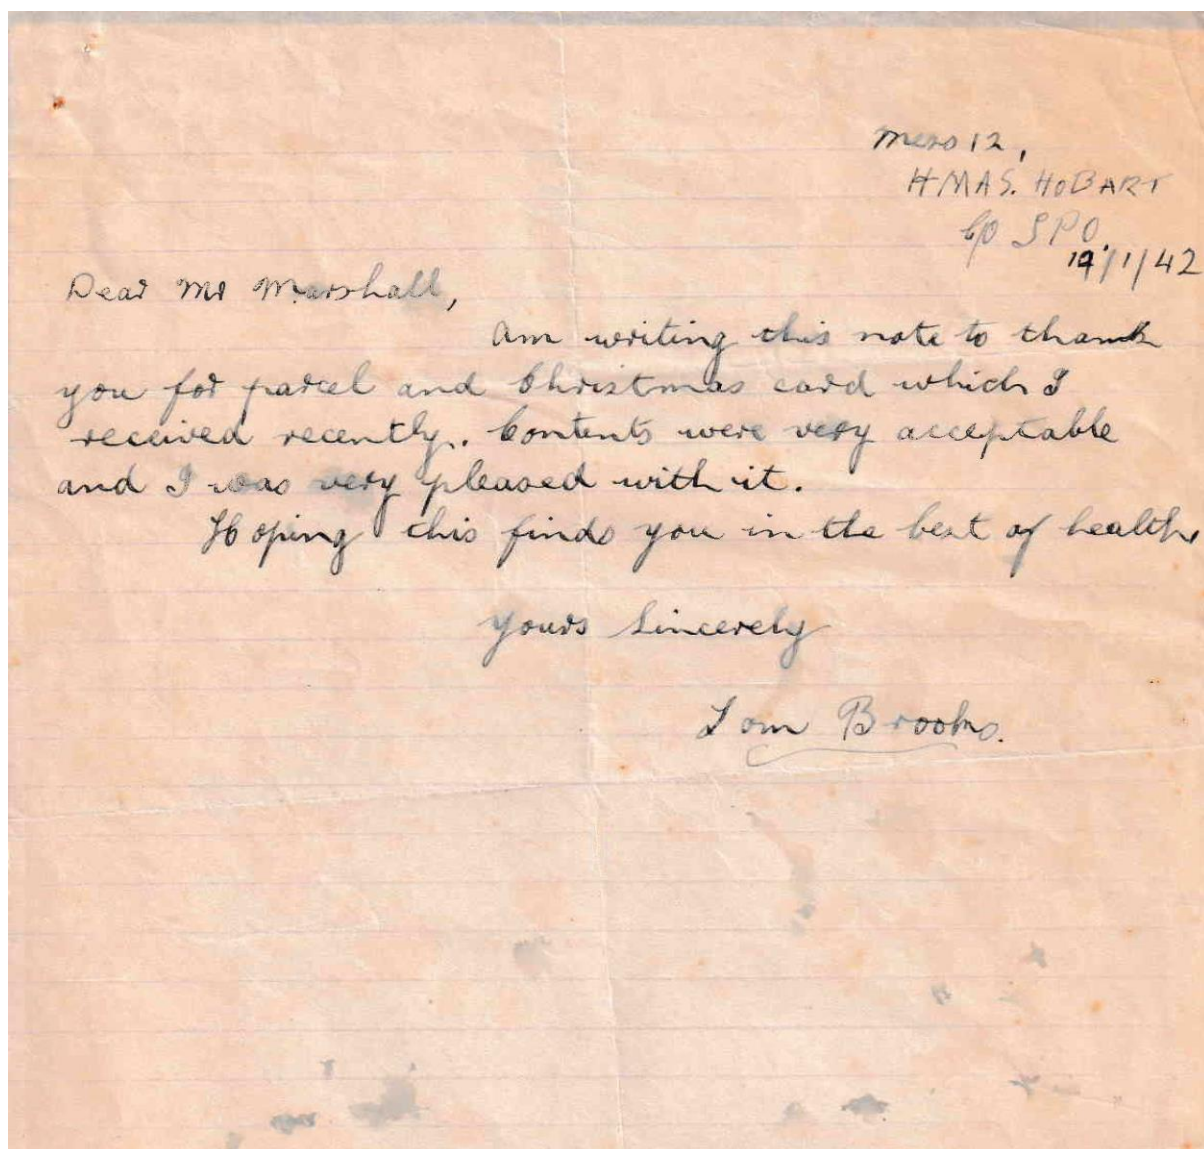 Mess 12,
HMAS. HOBART
C/O SPO
19/1/42
Dear Mr Marshall,
Am writing this note to thank
you for parcel and Christmas card which I
received recently. Contents were very acceptable
and I was very pleased with it.
Hoping this finds you in the best of health,
Yours Sincerely
Tom Brooks.